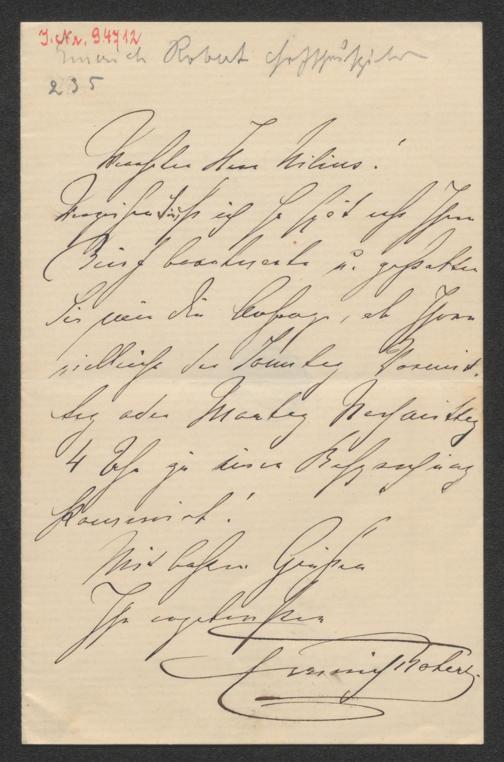 J. Nr. 94712
Emerich Robert Hofschauspieler
235
Verehrter Herr Nilius!
Verzeihen Sie daß ich so spät erst Ihren
Brief beantworte u. gestatten
Sie mir die Anfrage, ob Ihnen
vielleicht der Sonntag Vormit-
tag oder Montag Nachmittag
4 Uhr zu einer Besprechung
konvenirt!
Mit besten Grüßen
Ihr ergebenster
Emerich Robert